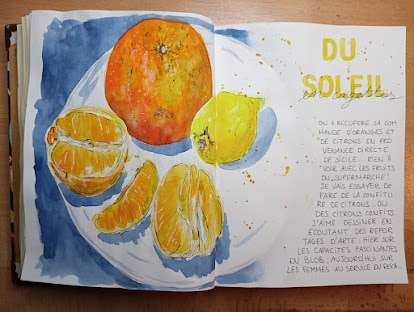 DU
SOLEIL
en cagettes
ON A RÉCUPÉRÉ SA COM
MANDE D'ORANGES ET
DE CITRONS EN PRO
VENANCE DIRECTE
DE SICILE. RIEN À
VOIR AVEC LES FRUITS
DU SUPERMARCHÉ!
JE VAIS ESSAYER DE
FAIRE DE LA CONFITU
RE DE CITRONS, OU
DES CITRONS CONFITS.
J'AIME DESSINER EN
ÉCOUTANT DES REPOR
TAGES D'ARTE: HIER SUR
LES CAPACITÉS FASCINANTES
DU BLOB, AUJOURD'HUI SUR
LES FEMMES AU SERVICE DU